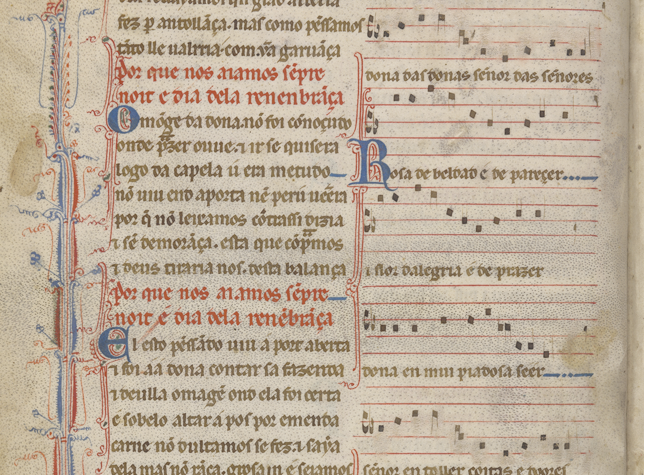 fez p̃ antollãça. mas como pẽssamos
tãto lle ualrria com̃a garuãça
Por que nos aiamos sẽpre
noit e dia dela renenbrãça
O mõge da dona nõ foi conoçuto
onde p̃zer ouue. ⁊ ir se quisera
logo da capela u era metudo
nõ uiu end aporta nẽ peru ueẽra
por q̃ nõ leixamos cõtrassi dizia
⁊ sẽ demorãça. esta que cõp̃mos
⁊ deus tiraria nos. desta balança
Por que nos aiamos sẽpre
noit e dia dela renẽbrãça
El esto pẽssãdo uiu a port aberta
⁊ foi aa dona contar sa fazenda
⁊ deulla omagẽ ond ela foi certa
e sobelo altar a pos por ementa
carne nõ dultamos se fez. ⁊ saỹa
dela mas nõ rãça. grossa ⁊ seiamos
dona das donas señor das señores
Rosa de beldad e de pareçer
⁊ flor dalegria e de prazer
dona en mui piadosa seer
señor en toller coitas e doores